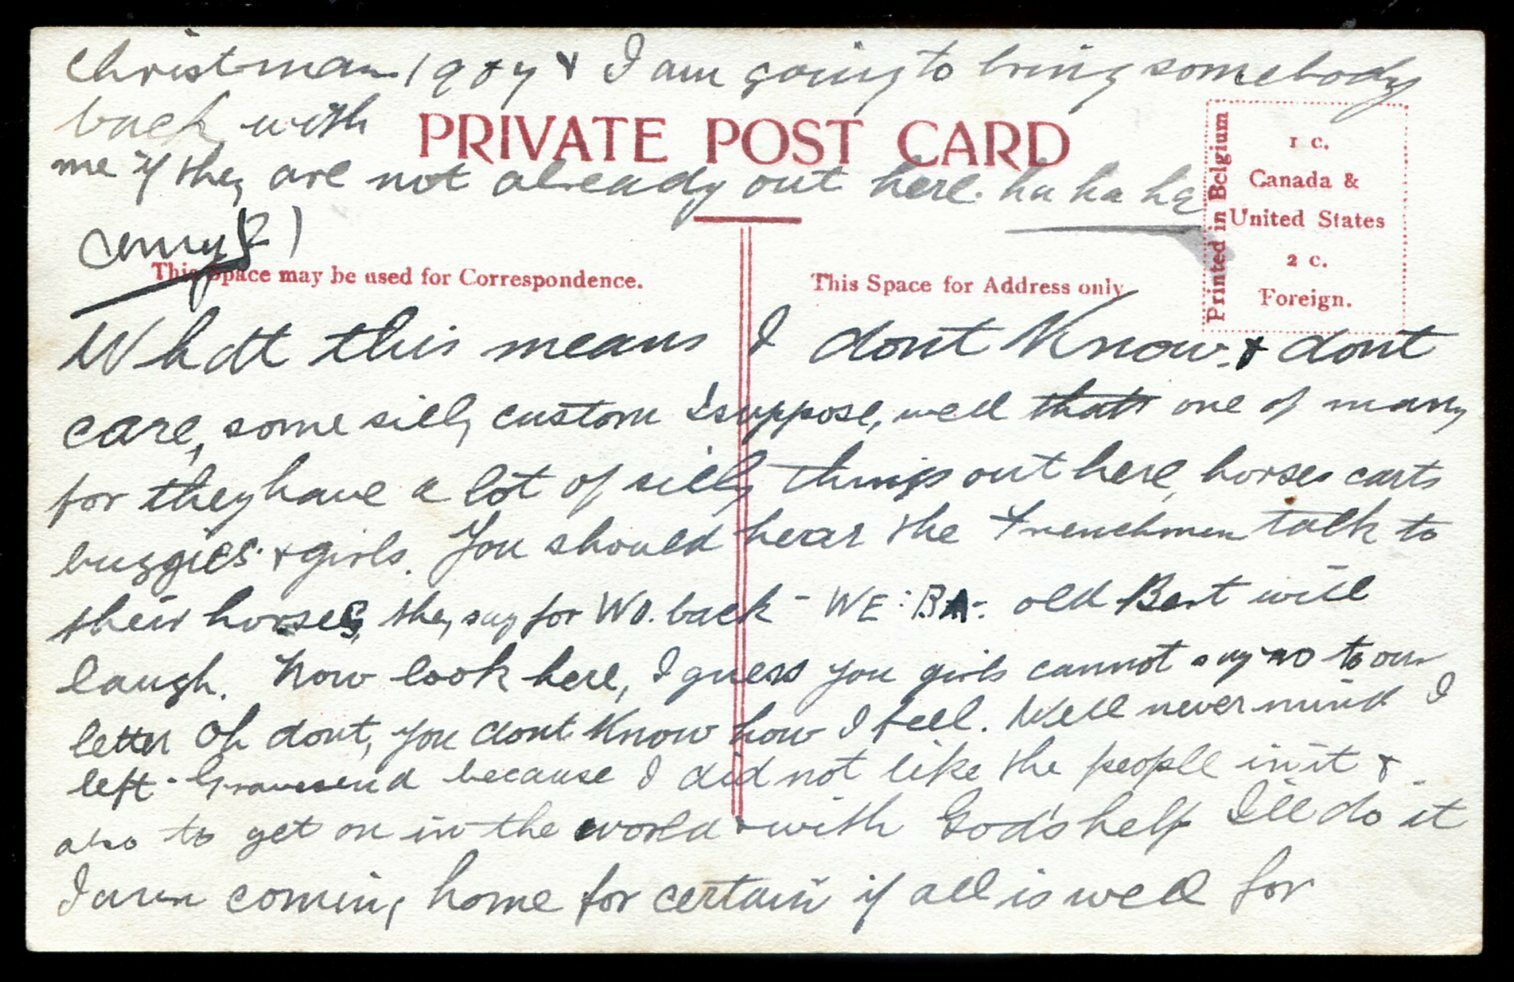 Christmas 1907 & I am going to bring somebody
back with
PRIVATE POST CARD
me if they are not already out here. ha ha ha
1 c.
Canada &
United States
2 c.
Foreign.
Printed in Belgium
This Space may be used for Correspondence.
This Space for Address only
What this means I dont Know & dont
care, some silly custom I suppose, well thats one of many
for they have a lot of silly things out here, horses carts
buggies & girls. You should hear the Frenchmen talk to
their horses, they say for WO. back - WE: BA: old Bert will
laugh. Now look here, I guess you girls cannot say no to our
letter Oh dont, you dont Know how I feel. Well never mind I
left Gravesend because I did not like the people in it &
also to get on in the world & with God's help I'll do it
I am coming home for certain if all is well for